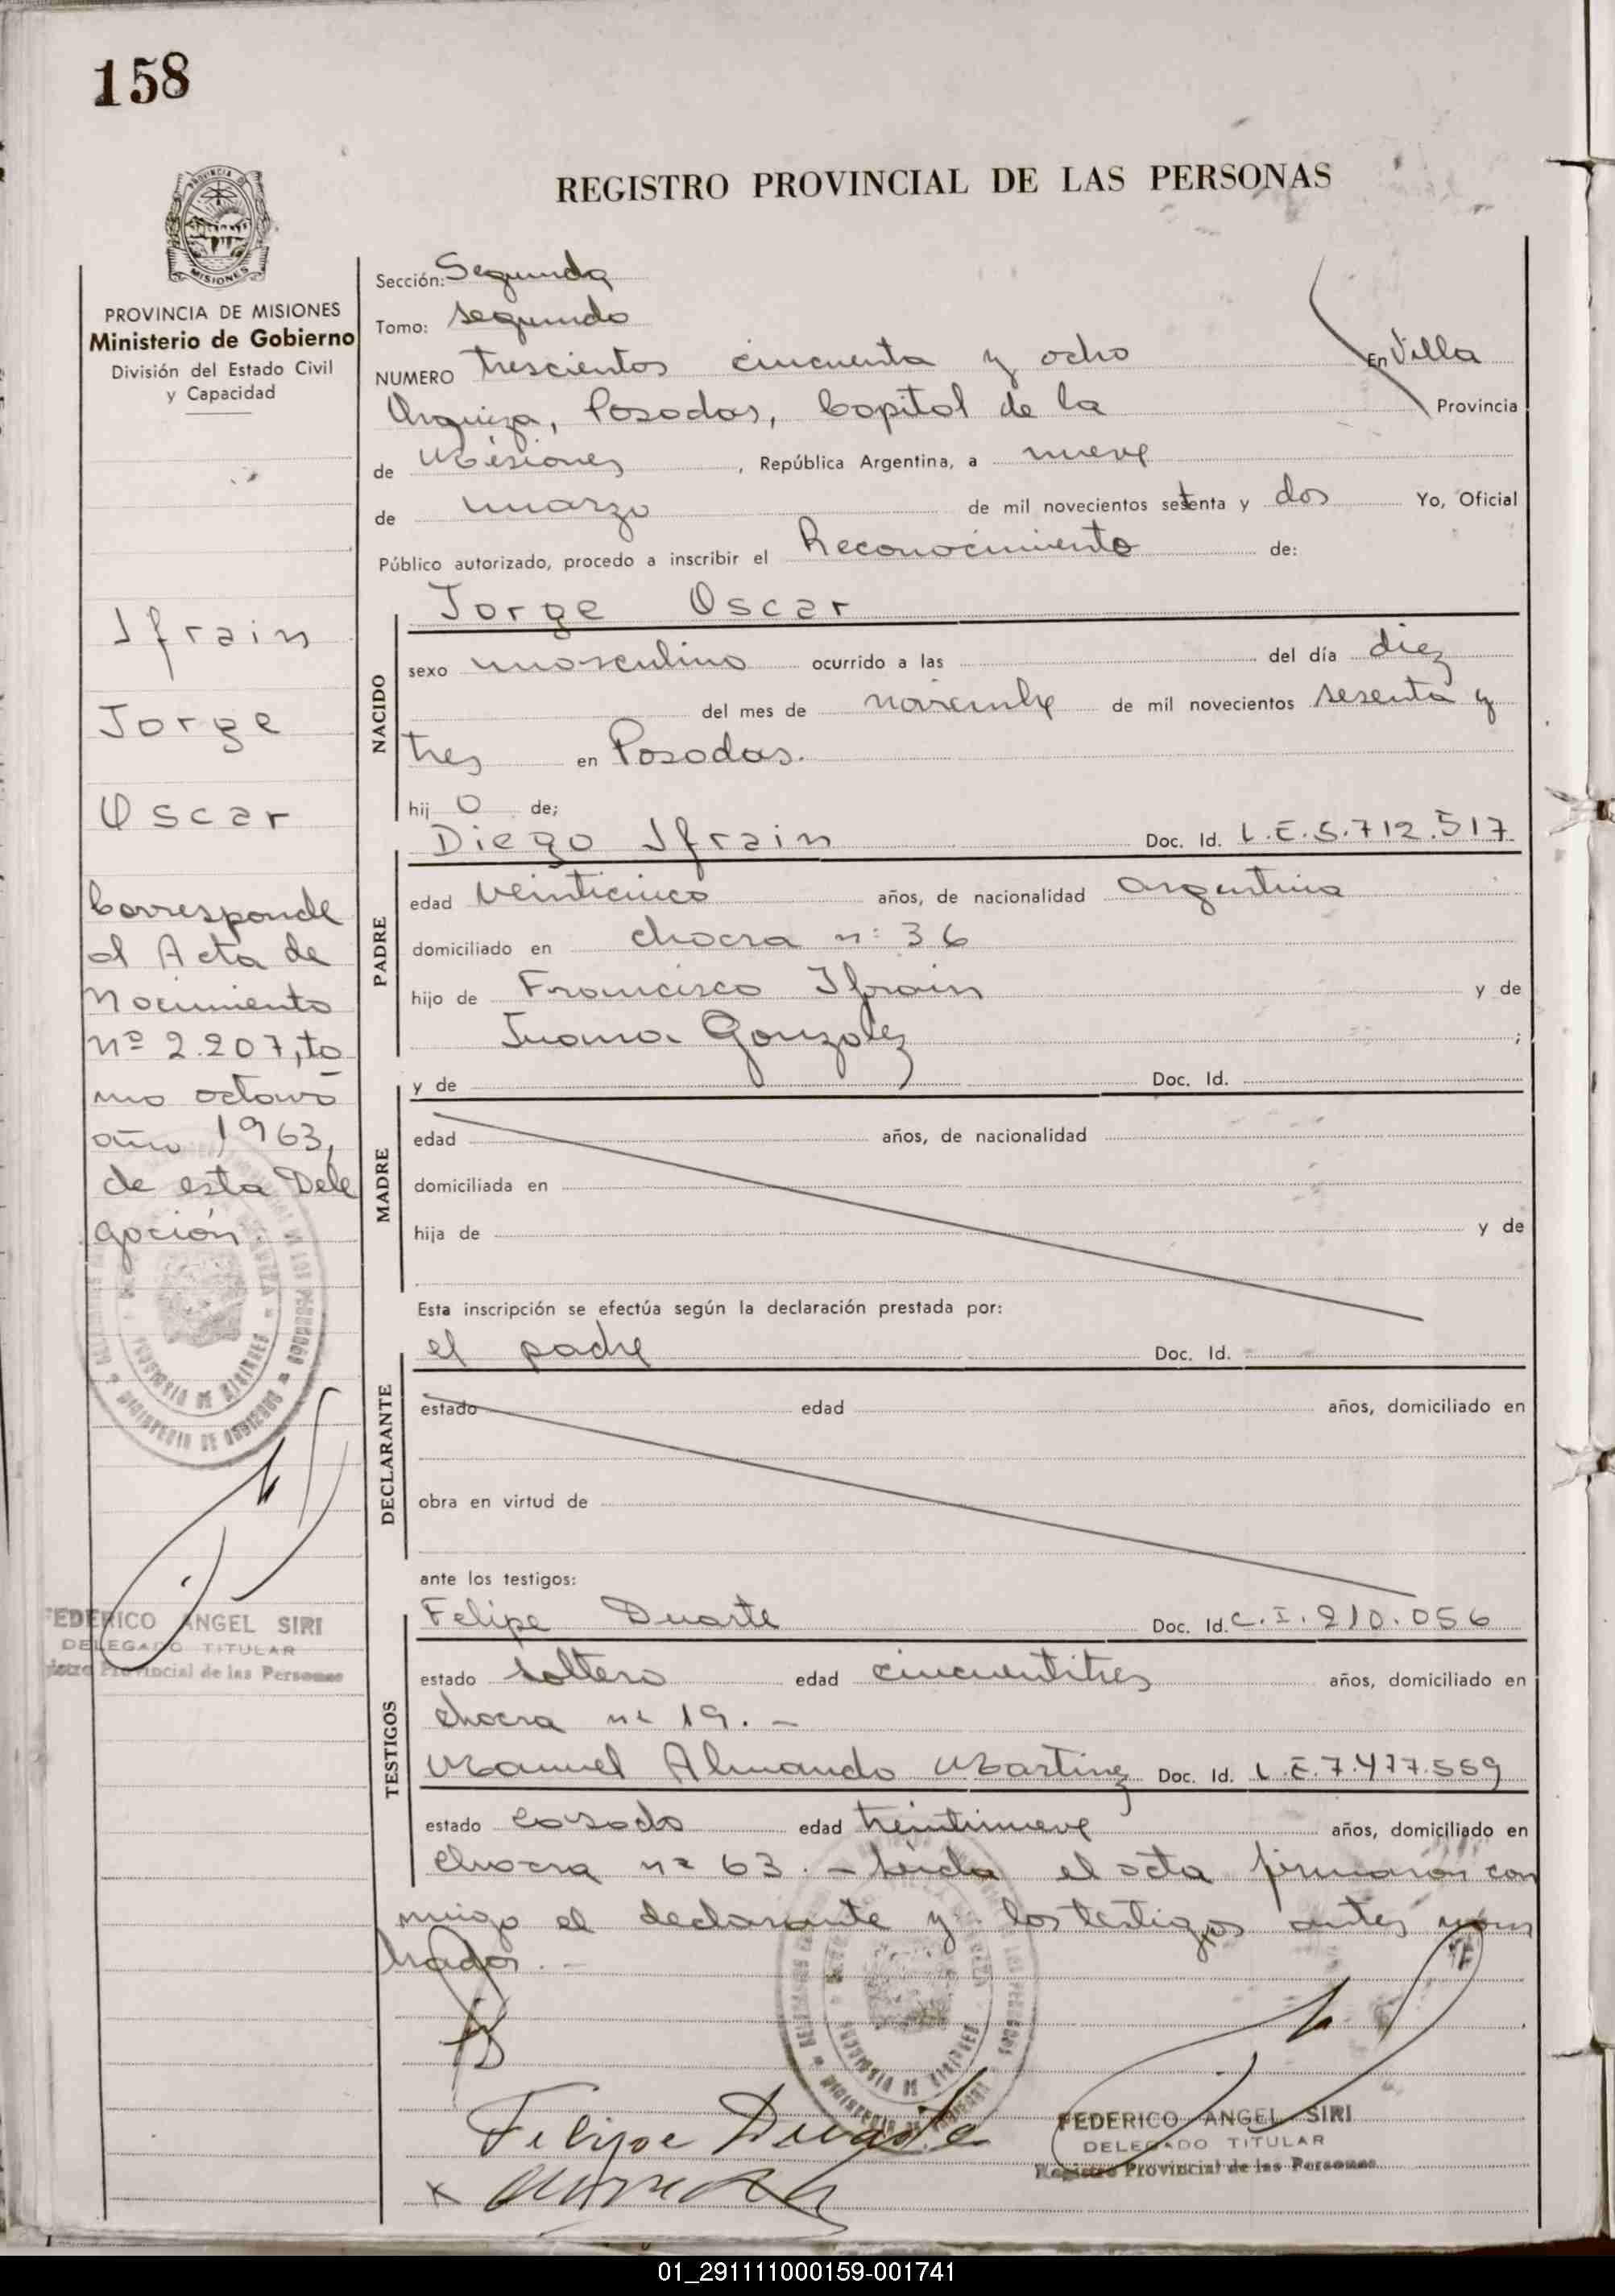 158
REGISTRO PROVINCIAL DE LAS PERSONAS
MISIONES
PROVINCIA DE MISIONES
Ministerio de Gobierno
División del Estado Civil
y Capacidad
Ifrain
Jorge
Oscar
Corresponde
al Acta de
Nacimiento
nº 2.207, to
mo octavo
año 1963,
de esta Dele
gación.
FEDERICO ANGEL SIRI
DELEGADO TITULAR
Provincial de las Personas
Sección: Segunda
Tomo: segundo
NUMERO trescientos cincuenta y ocho En Villa
Urquiza, Posadas, Capital de la Provincia
de Misiones, República Argentina, a nueve
de marzo de mil novecientos setenta y dos Yo, Oficial
Público autorizado, procedo a inscribir el Reconocimiento de:
Jorge Oscar
NACIDO
sexo masculino ocurrido a las del día diez
del mes de noviembre de mil novecientos sesenta y
tres en Posadas.
hij o de;
Diego Ifrain Doc. Id. L.E.S.712.517
PADRE
edad veinticinco años, de nacionalidad argentina
domiciliado en chacra nº 36
hijo de Francisco Ifrain y de
Juana Gonzalez ;
y de Doc. Id.
MADRE
edad años, de nacionalidad
domiciliada en
hija de y de
Esta inscripción se efectúa según la declaración prestada por:
el padre Doc. Id.
DECLARANTE
estado edad años, domiciliado en
obra en virtud de
ante los testigos:
Felipe Duarte Doc. Id. C.I. 210.056
TESTIGOS
estado soltero edad cincuentitres años, domiciliado en
chacra nº 19.-
Manuel Almando Martinez Doc. Id. L.E.7.477.559
estado casado edad treintinueve años, domiciliado en
chacra nº 63.- Leida el acta firmaron con
migo el declarante y los testigos antes nom
brados.-
Felipe Duarte
FEDERICO ANGEL SIRI
DELEGADO TITULAR
Registro Provincial de las Personas
01_291111000159-001741